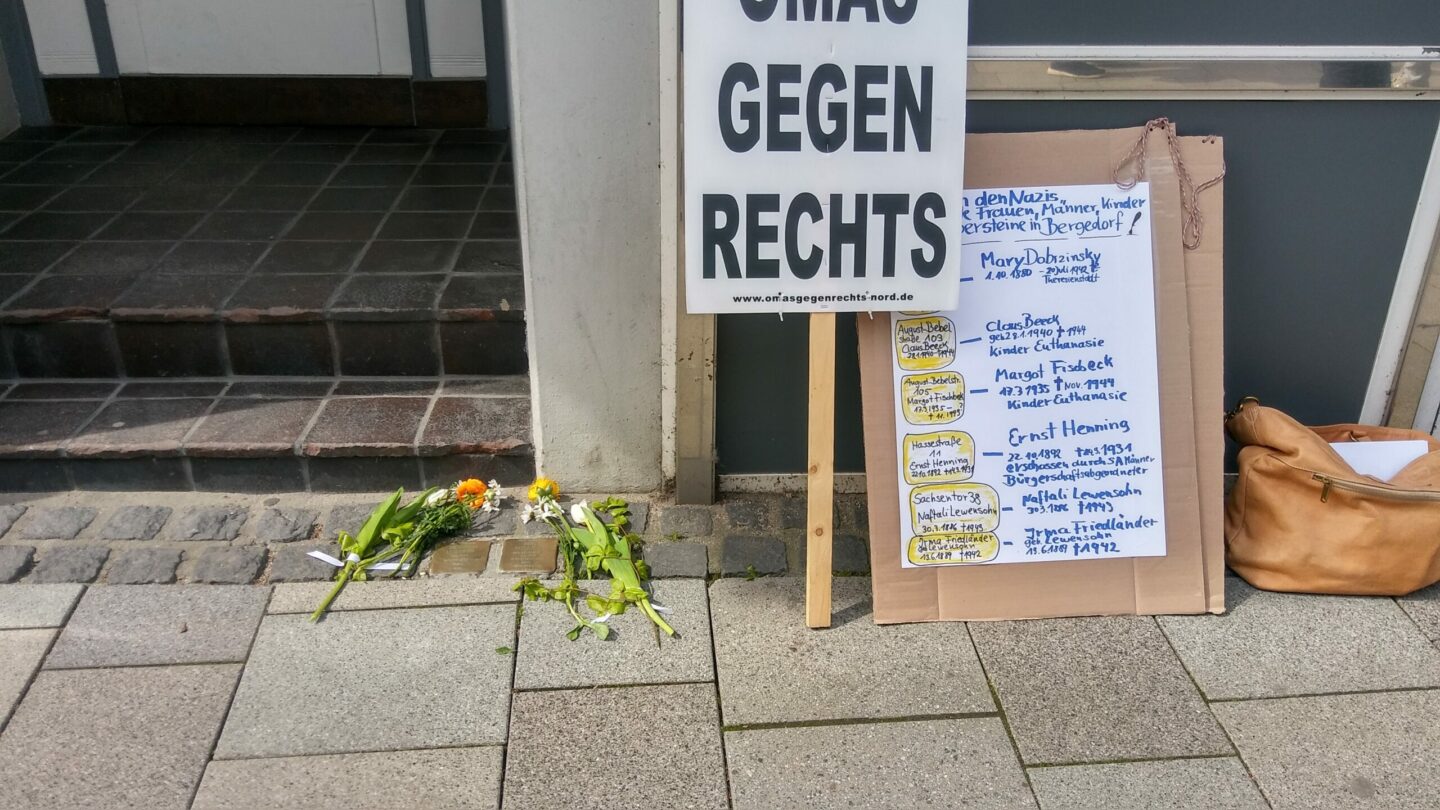 OMAS
GEGEN
RECHTS
www.omasgegenrechts-nord.de
den Nazis
Frauen, Männer, Kinder
in Bergedorf!
Mary Dobrzinsky
1.10.1880 - 20 Juli 1942
Theresienstadt
August-Bebel
straße 109
Claus Beeck
28.1.1940 †1944
Claus Beeck
geb 28.1.1940 † 1944
Kinder Euthanasie
August-Bebelstr.
105
Margot Fischbek
17.3.1935 -
Margot Fischbeck
17.3 1935 † Nov. 1944
Kinder Euthanasie
Hassestraße
11
Ernst Henning
22.10.1892 †14.3.1931
Ernst Henning
22.10.1892 †14.3.1931
erschossen durch SA Männer
Bürgerschaftsabgeordneter
Sachsentor 38
Naftali Lewensohn
30.3.1876 †1943
Naftali Lewensohn
Irma Friedländer
Lewensohn
13.6.1889 †1942
Irma Friedländer
geb. Lewensohn
13.6.1889 †1942